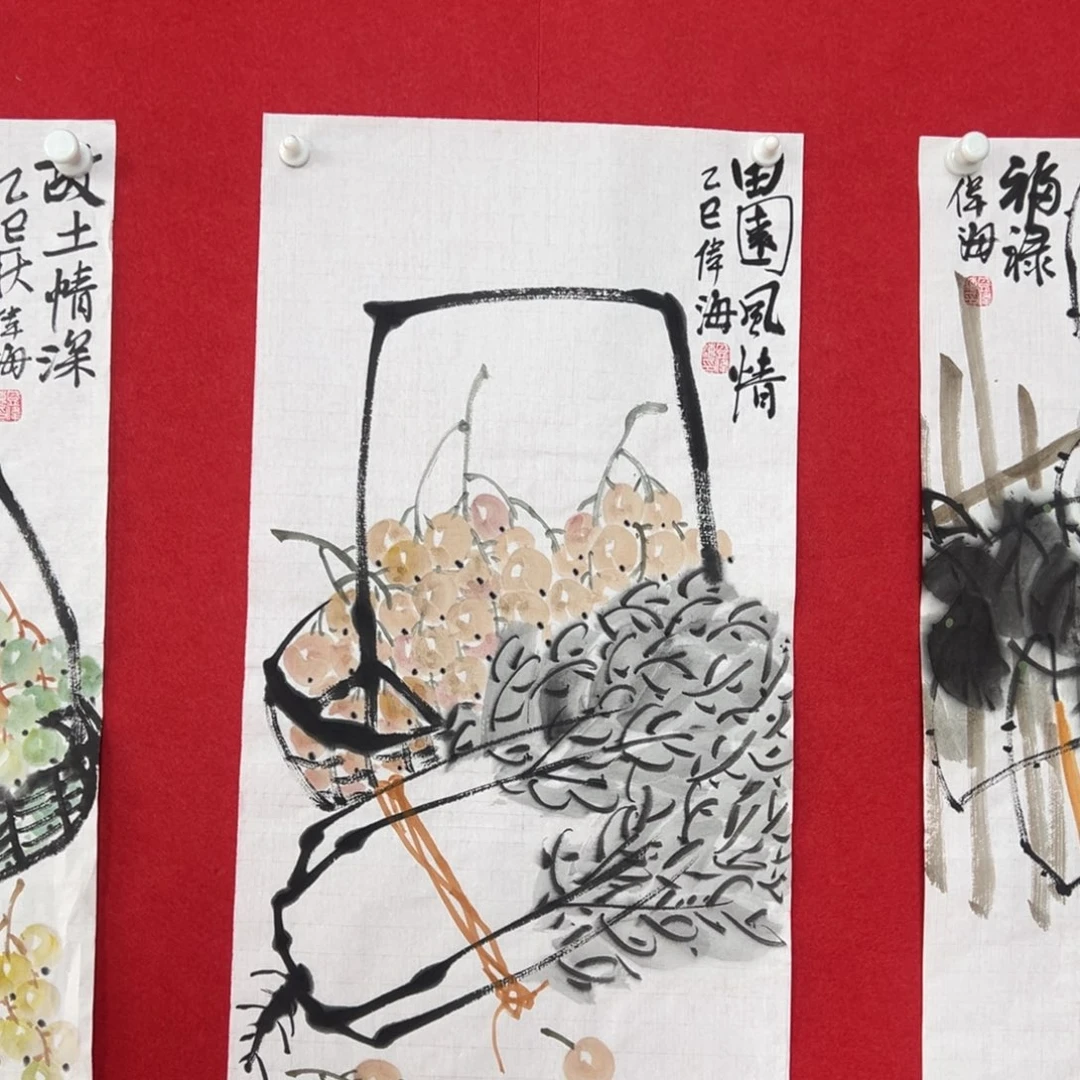 故土情深
乙巳秋偉海
田園風情
乙巳偉海
福禄
偉海